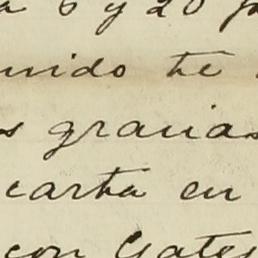 a 6 y 20 
nido te
s gracias
carta en
con Gates